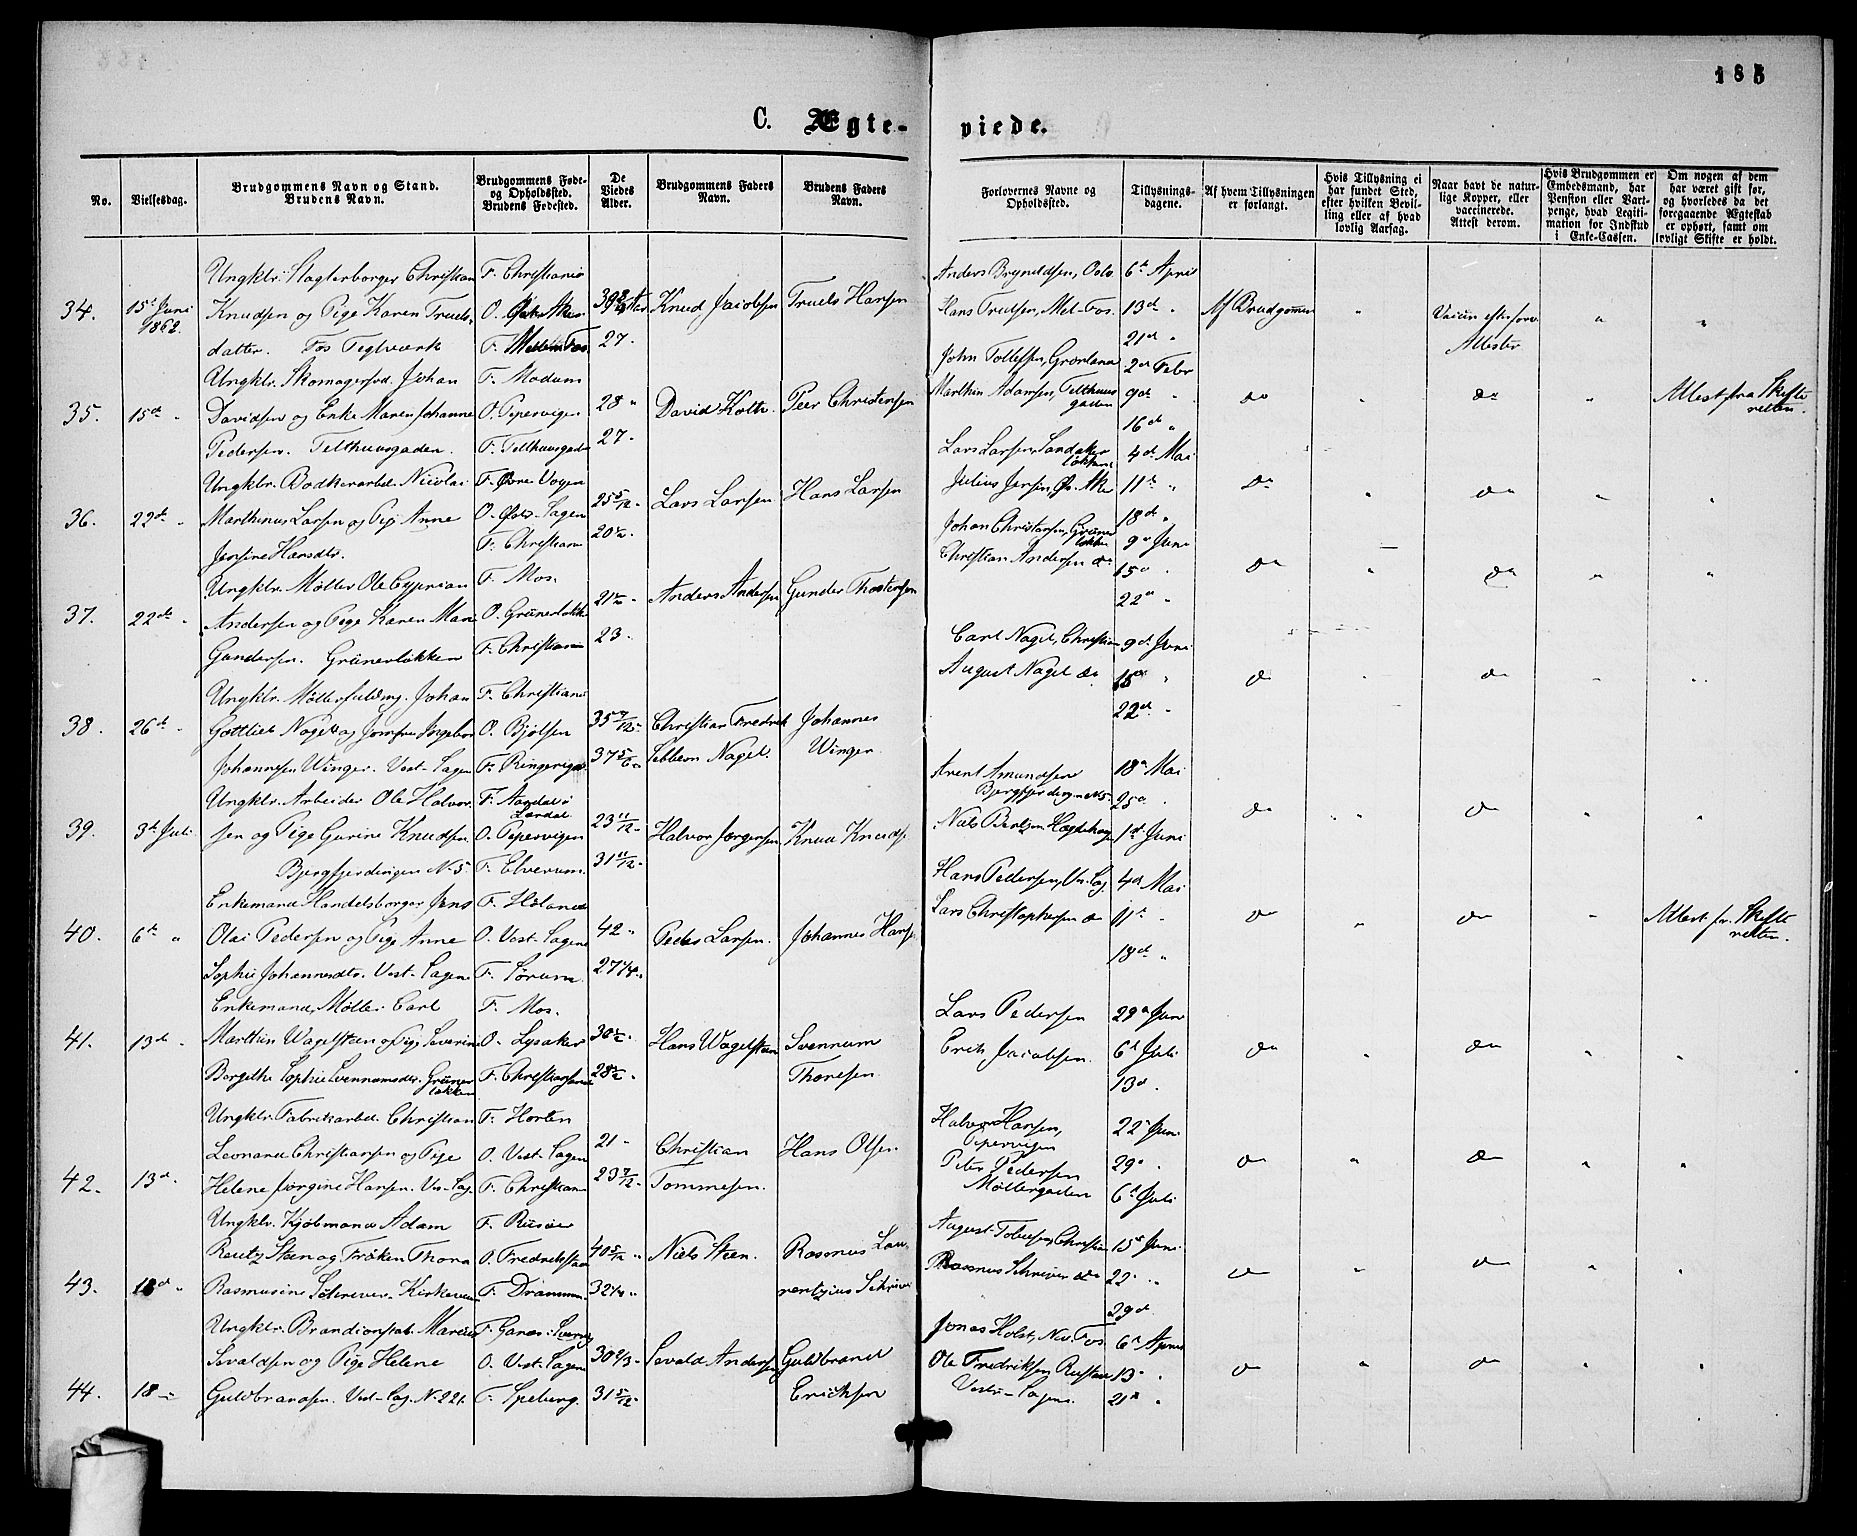 185
C. Ægte-
viede.
No.
Vielsesdag.
Brudgommens Navn og Stand.
Brudens Navn.
Brudgommens Føde-
og Opholdssted.
Brudens Fødested.
De
Viedes
Alder.
Brudgommens Faders
Navn.
Brudens Faders
Navn.
Forlovernes Navne og
Opholdssted.
Tillysnings-
dagene.
Af hvem Tillysningen
er forlangt.
Hvis Tillysning ei
har fundet Sted,
efter hvilken Bevil-
ling eller af hvad
lovlig Aarsag.
Naar havt de natur-
lige Kopper, eller
vaccinerede.
Attest derom.
Hvis Brudgommen er
Embedsmand, har
Pension eller Vart-
penge, hvad Legiti-
mation for Indskud
i Enke-Cassen.
Om nogen af dem
har været gift før,
og hvorledes da det
foregaaende Ægteskab
er ophørt, samt om
lovligt Skifte er holdt.
34.
15d Juni
1862.
Ungklr. Slagterborger Christian
Knudsen og Pige Karen Truels-
datter. Fos Teglværk
F. Christiania
O.
F. Mellem Fos
27.
Knud Jacobsen
Truels Hansen
Anders Bryneldsen, Oslo
Hans Truelsen, Mel-Fos.
6te April
13d "
21d "
Af Brudgommen
"
Attester
"
"
35.
15de "
Ungklr. Skomagersvd. Johan
Davidsen og Enke Maren Johanne
Pedersen. Telthuusgaden.
F. Modum
O. Pipervigen
F. Telthuusgade
28 "
27.
David Kolth.
Peer Christensen
John Tollefsen, Grønland
Marthin Adamsen, Telthuus
gaden
2d Febr
9d "
16de "
do
"
do
"
Attest fra Skifte
retten.
36.
22de "
Ungklr. Bødkerarbd. Nicolai
Marthinus Larsen og Pig. Anne
Jensine Hansdtr.
F. Øvre Vogen
O. Søgen
F. Christiania
25 5/12 "
20 1/2 "
Lars Larsen
Hans Larsen
Lars Larsen, Sandaker
løkken
Julius Jensen, Øs. Ake
4d Mai
11te "
18d "
do
"
do
"
"
37.
22de "
Ungklr. Møller Ole Cyprian
Andersen og Pige Karen Marie
Gundersen. Grünerløkken
F. Mos.
O. Grünerløkk
F. Christiania
21 1/2 "
23.
Anders Andersen
Gunder Thostensen
Johan Christensen, Grüner
løkken
Christian Andersen do
9d Juni
15d "
22d "
do
"
do
"
"
38.
26d "
Ungklr. Møllerfuldmg. Johan
Gottlieb Nagel og Jomfru Ingebor
Johannesen Winger. Vest-Sagen
F. Christiania
O. Bjølsen
F. Ringerige
35 7/12 "
37 5/6 "
Christian Fredrik
Sibbern Nagel.
Johannes
Winger.
Carl Nagel, Christian
August Nagel do
9d Juni
15d "
22d "
do
"
do
"
"
39.
3d Juli.
Ungklr. Arbeider Ole Halvor
sen og Pige Gurine Knudsen
Bjergfjerdingen No 5.
F. Aardal i
Lærdal
O. Pipervigen
F. Elverum
23 11/12 "
31 11/12 "
Halvor Jørgensen
Knud Knuds.
Arent Amundsen
Bjergfjerdingen No 5.
Niels Berlsen Hægdehaug
18d Mai
25d "
1d Juni
do
"
do
"
"
40.
6te "
Enkemand Handelsborger Jens
Olai Pedersen og Pige Anne
Sophie Johannesdtr. Vest-Sagene
F. Høland
O. Vest-Sagene
F. Sørum.
42 "
27 1/4 "
Peder Larsen.
Johannes Hans.
Hans Pedersen, Ve. Sag.
Lars Christophersen do
4d Mai
11te "
18d "
do
"
do
"
Attest fr. Skifte
retten.
41.
13d "
Enkemand, Møller Carl
Marthin Wagelsteen og Pig. Severine
Bergithe Sophie Svennumsdr. Grüner
løkken
F. Mos.
O. Lysaker
F. Christiansand
30 1/2 "
28 1/2 "
Hans Wagelsteen
Svennum
Thoresen.
Lars Pedersen
Erik Jacobsen.
29d Juni
6d Juli
13d.
do
"
do
"
"
42.
13d "
Ungklr. Fabrikarbd. Christian
Leonard Christiansen og Pige
Helene Jørgine Hansen. Ves-Sag.
F. Horten
O. Vest-Sagen
F. Christiania
21 "
23 7/12 "
Christian
Tommesen.
Hans Olsen.
Halvor Hansen,
Pipervigen
Peter Pedersen
Møllergaden
22d Juni
29d "
6d Juli
do
"
do
"
"
43.
18d "
Ungklr. Kjøbmand Adam
Reutz Steen og Frøken Thora
Rasmusine Schriver. Kirkeveien
F. Risøer
O. Fredrikstad
F. Drammen.
40 5/12 "
32 1/4 "
Niels Steen.
Rasmus Lau-
rentzius Schriver
August Tobiesen, Christian
Rasmus Schriver do
15d Juni
22 " "
29d.
do
"
do
"
"
44.
18 "
Ungklr. Brandkonstab. Marius
Sevaldsen og Pige Helene
Guldbrandsen. Vest-Sag. No 221.
F. Ganæs i Sverrig
O. Vest-Sagen
F. Speberg
30 2/3 "
31 5/12 "
Sevald Andersen
Guldbrand
Ericksen
Jonas Holst, Ne. Fos
Ole Fredriksen Rustan
Vestre-Sagene.
6d April
13 "
21d "
do
"
do
"
"